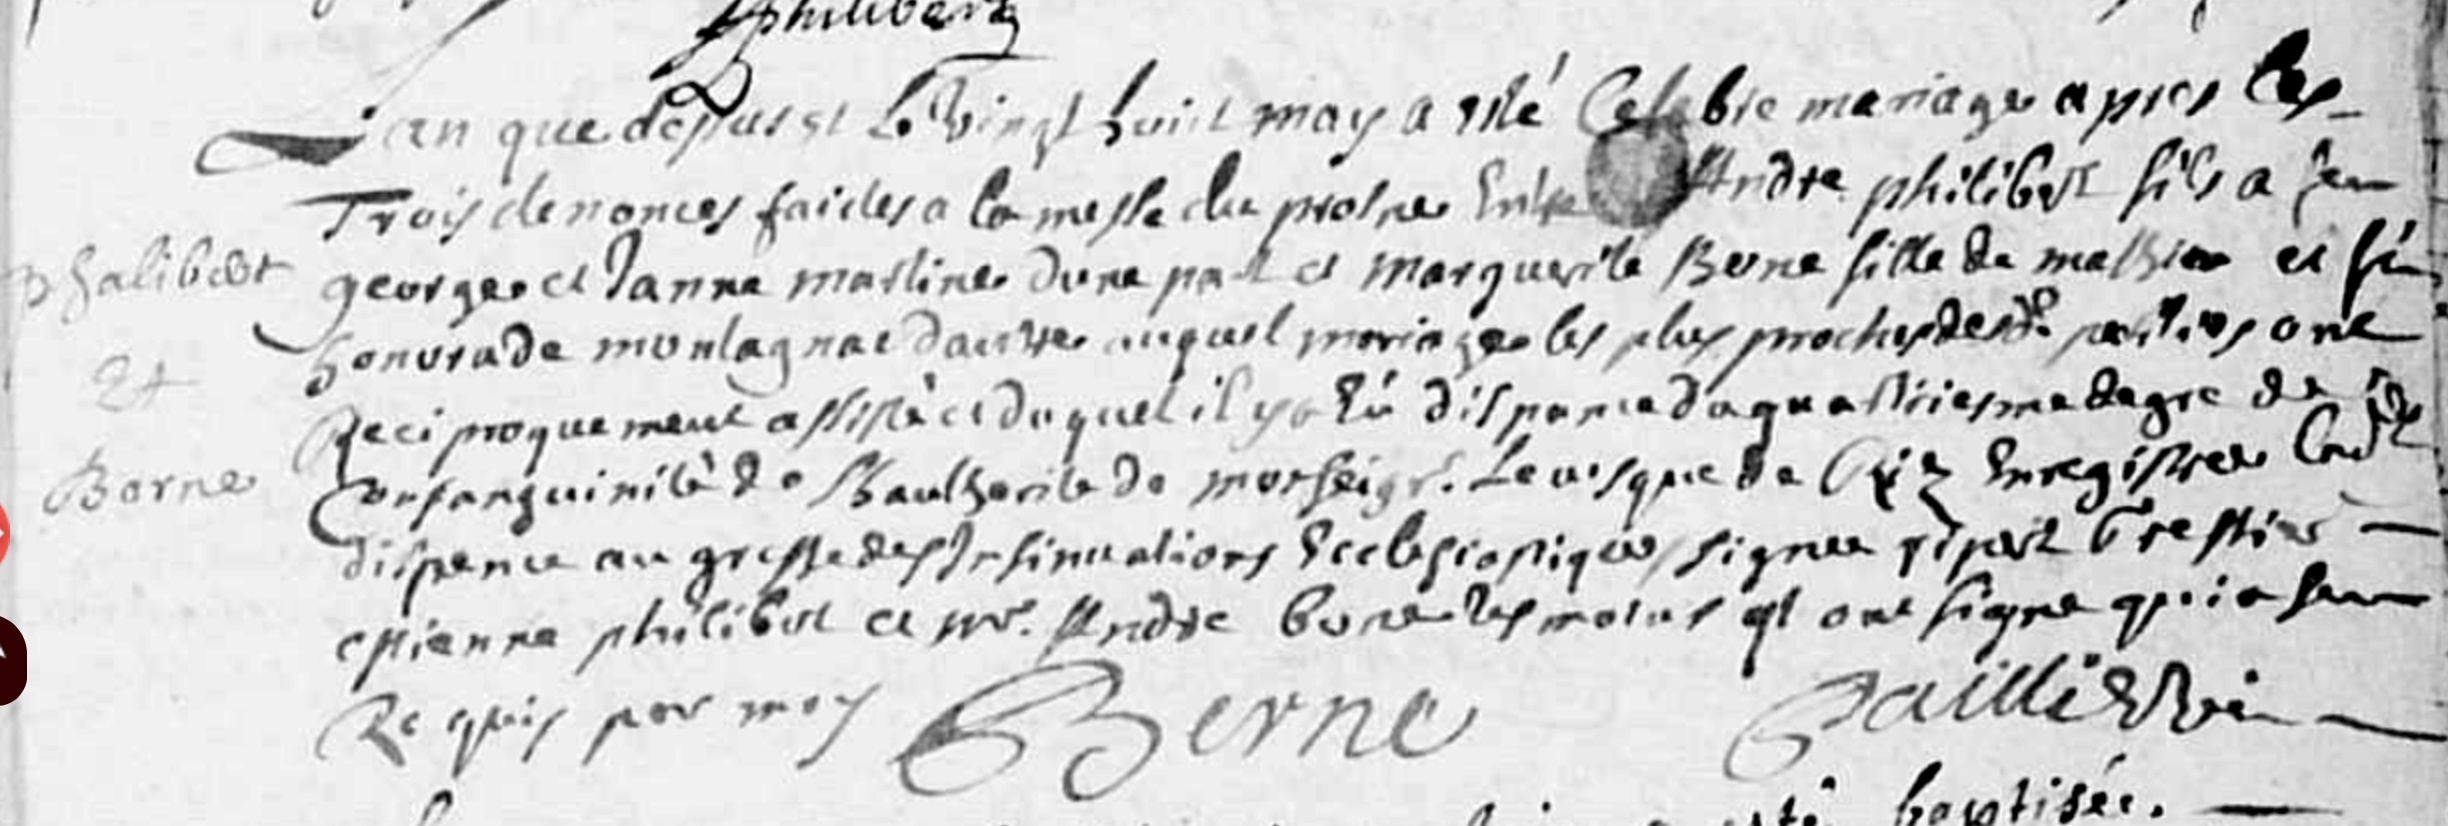 philibert
Lan que dessus et le vingt huict may a esté Celebre mariage apres les
Trois denonces faictes a la messe du prosne Entre Andre philibert fils a feu
georges et Janne martine dune part et Marguerite Berne fille de mathieu et feu
honorade montagnac dautre auquel mariage les plus proches desd. parties ont
Reciproquement assisté et duquel il y a Eu dispance du quatriesme degre de
Consanguinité de lhautherite de monseigr. Levesque de Riez Enregistree lad
dispence au greffe des Insinuations Ecclesiastiques signee
estienne philibert et mr. Andre berne tesmoins qt ont signe qui a sceu
Requis par moy Berne
phalibert
Et
Berne
esté baptisée.